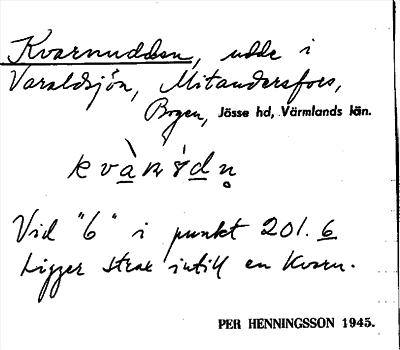 Kvarnudden, udde i
Varaldsjön, Mitandersfors,
Bogen, Jösse hd, Värmlands län.
Vid "6" i punkt 201.6
Ligger strax intill en Kvarn.
PER HENNINGSSON 1945.